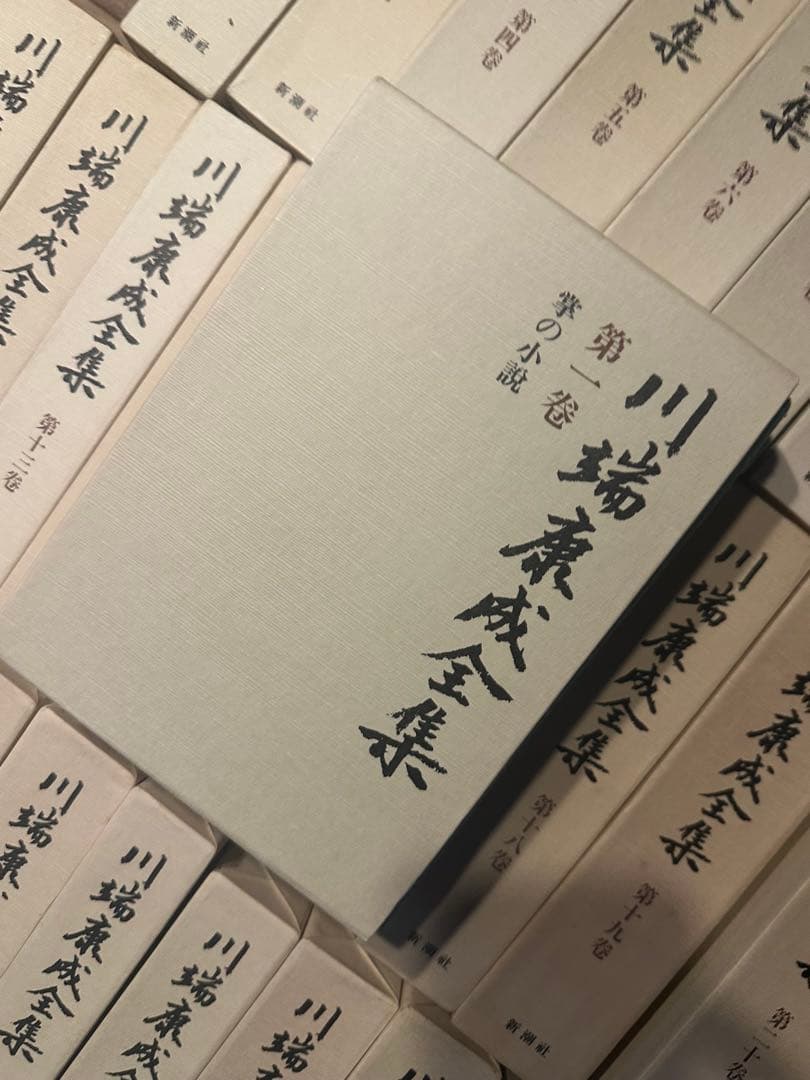 川端康成全集
第一卷
掌の小説
新潮社
新潮社
第四卷
全集
第五卷
集
第六卷
川端康成全集
川端康成全集
川端康成全集
第十三卷
川端康成全集
第十八卷
新潮社
端康成全集
第十九卷
新潮社
第二十卷
川端康
川端康成全集
川端康成全
川端